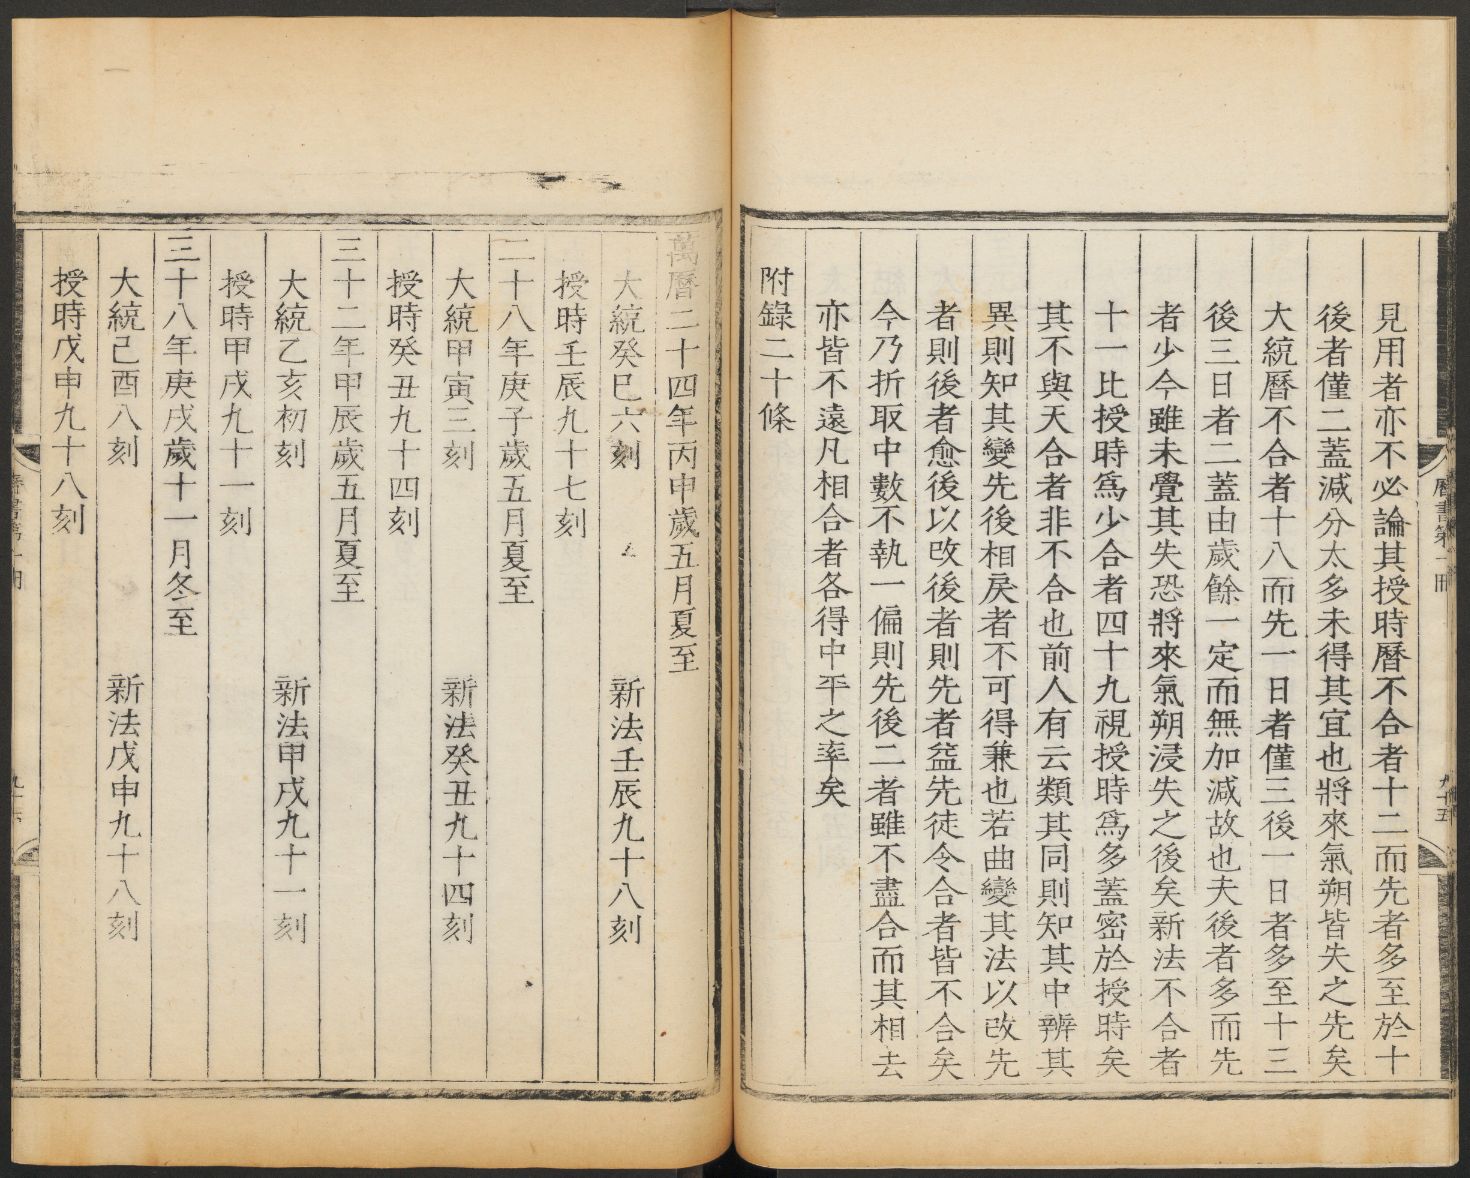 見用者亦不必論其授時曆不合者十二而先者多至於十
後者僅二蓋減分太多未得其宜也將來氣朔皆失之先矣
大統曆不合者十八而先一日者僅三後一日者多至十三
後三日者二蓋由歲餘一定而無加減故也夫後者多而先
者少今雖未覺其失恐將來氣朔浸失之後矣新法不合者
十一比授時爲少合者四十九視授時爲多蓋密於授時矣
其不與天合者非不合也前人有云類其同則知其中辨其
異則知其變先後相戾者不可得兼也若曲變其法以改先
者則後者愈後以改後者則先者益先徒令合者皆不合矣
今乃折取中數不執一偏則先後二者雖不盡合而其相去
亦皆不遠凡相合者各得中平之率矣
附錄二十條
曆書第一冊
九十五
萬曆二十四年丙申歲五月夏至
大統癸巳六刻 新法壬辰九十八刻
授時壬辰九十七刻
二十八年庚子歲五月夏至
大統甲寅三刻 新法癸丑九十四刻
授時癸丑九十四刻
三十二年甲辰歲五月夏至
大統乙亥初刻 新法甲戌九十一刻
授時甲戌九十一刻
三十八年庚戌歲十一月冬至
大統己酉八刻 新法戊申九十八刻
授時戊申九十八刻
曆書第一冊